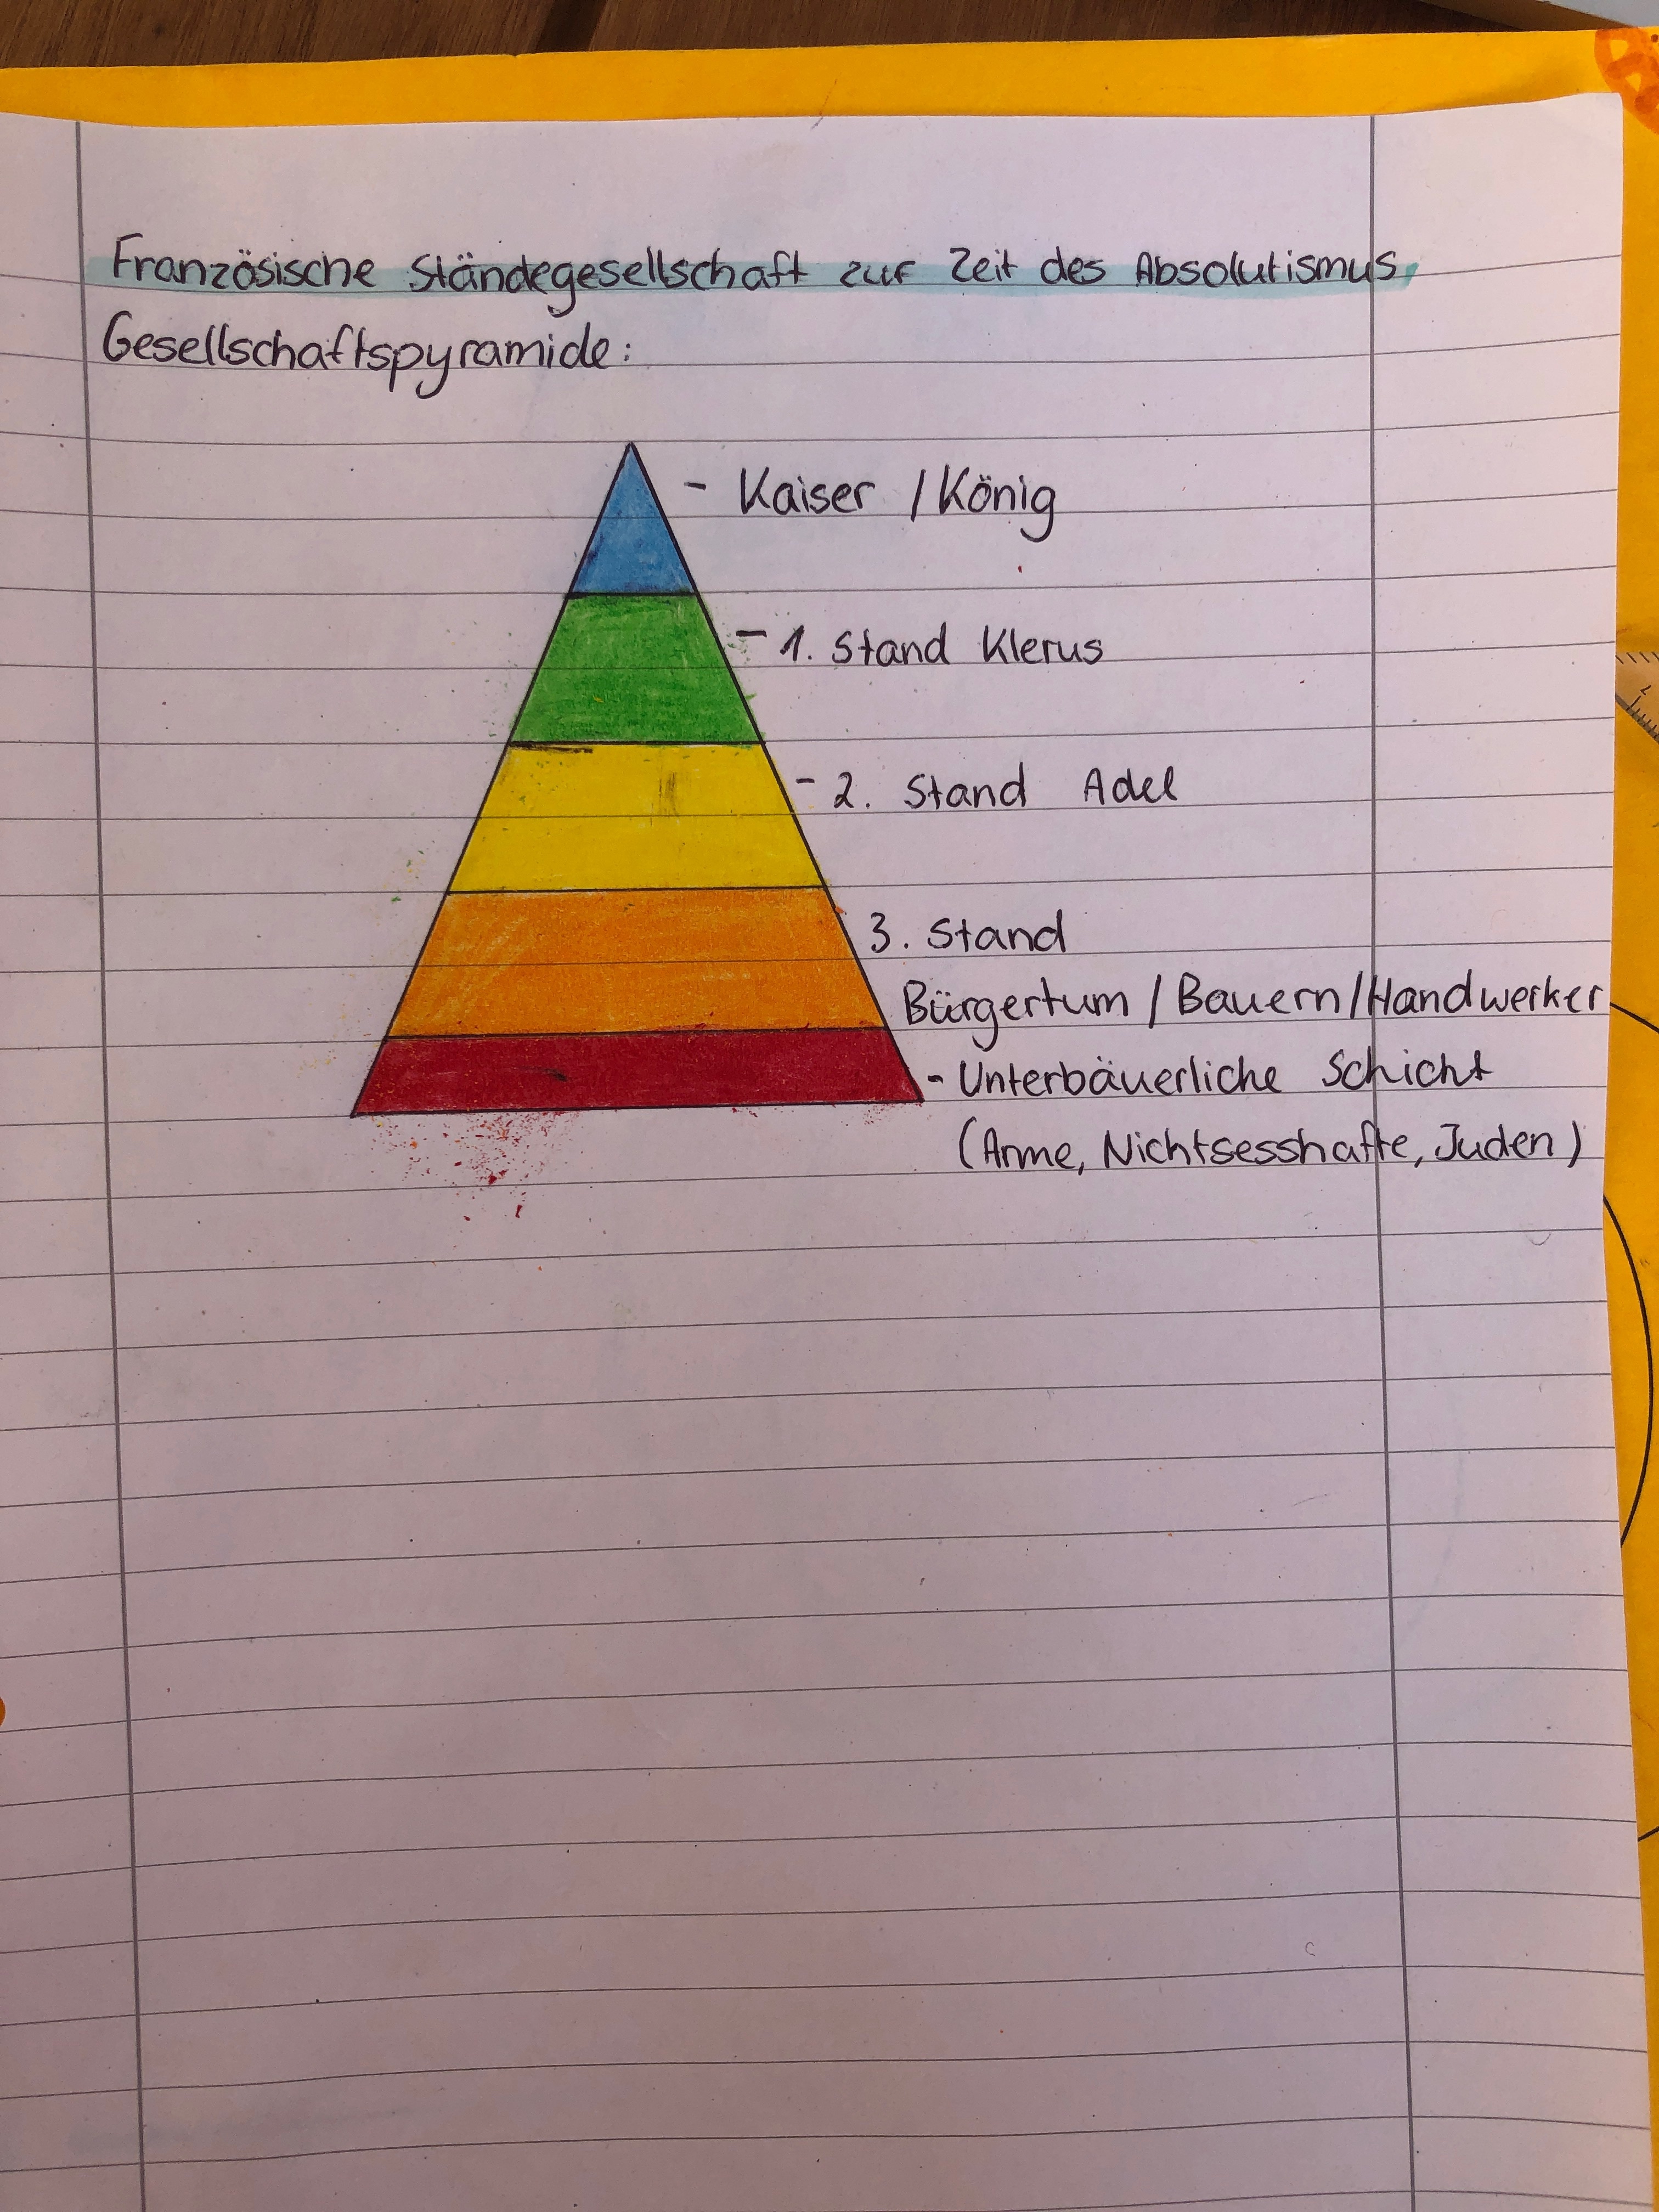 Französische Ständegesellschaft zur Zeit des Absolutismus
Gesellschaftspyramide:
- Kaiser / König
- 1. Stand Klerus
- 2. Stand Adel
3. Stand
Bürgertum / Bauern / Handwerker
- Unterbäuerliche Schicht
(Arme, Nichtsesshafte, Juden)